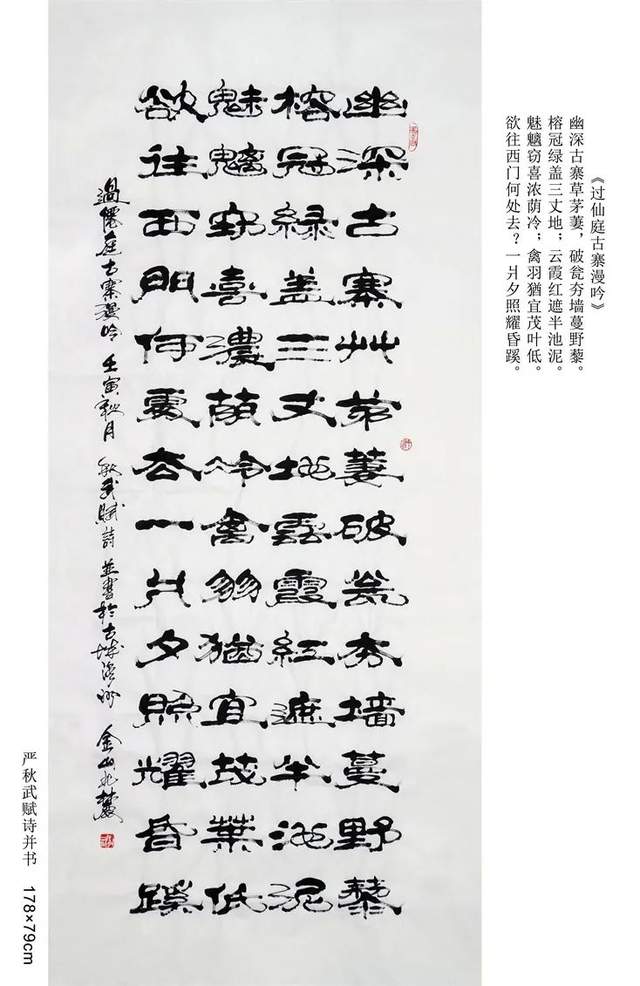 《过仙庭古寨漫吟》
幽深古寨草茅萋，破瓮夯墙蔓野藜。
榕冠绿盖三丈地；云霞红遮半池泥。
魅魑窃喜浓荫冷；禽羽犹宜茂叶低。
欲往西门何处去？一爿夕照耀昏蹊。
幽深古寨艸茅萋破瓮夯墙蔓野藜
榕冠緑盖三丈地雲霞红遮半池泥
魅魑窃喜濃荫冷禽羽猶宜茂葉低
欲往西門何處去一爿夕照耀昏蹊
過僊庭古寨漫吟 壬寅秋月 秋武賦詩並書於古城 金山北麓
严秋武赋诗并书 178×79cm